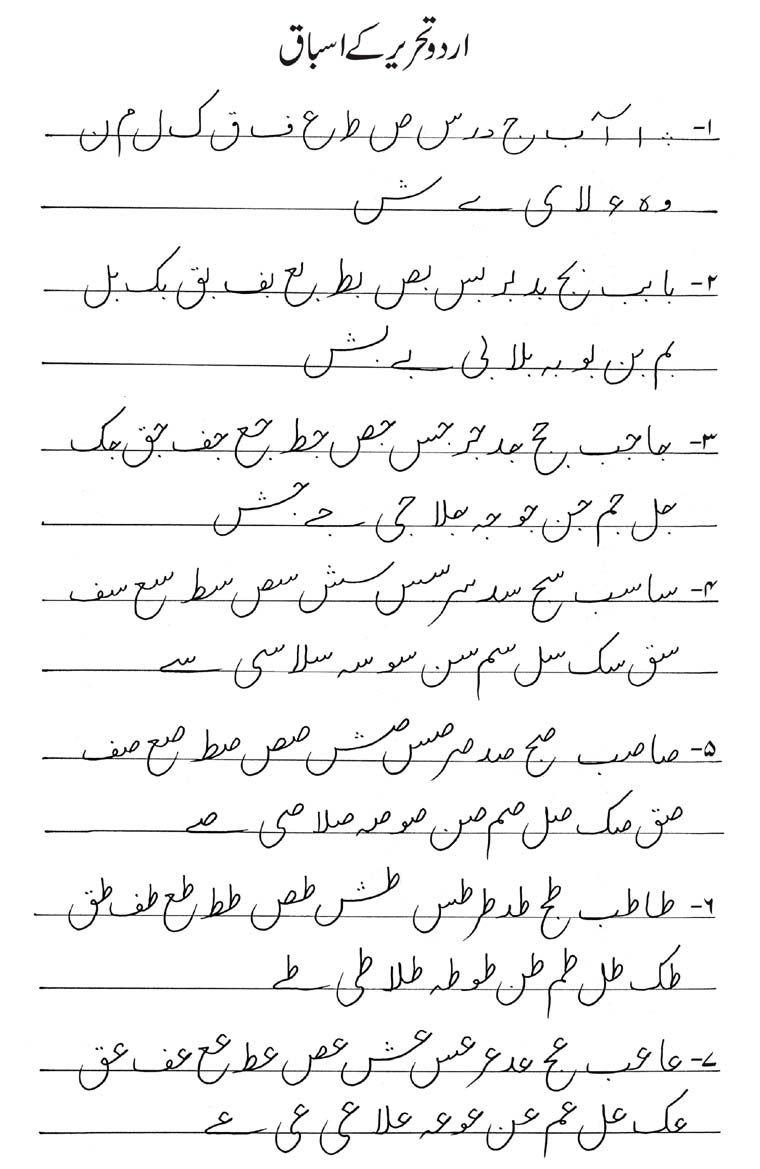 اردو تحریر کے اسباق
۱- ا آ ب ج د ر س ص ط ع ف ق ک ل م ن
و ہ ء لا ی ے ش
۲- با بب بج بد بر بس بص بط بع بف بق بک بل
بم بن بو بہ بلا بی بے بش
۳- جا جب جج جد جر جس جص جط جع جف جق جک
جل جم جن جو جہ جلا جی جے جش
۴- سا سب سج سد سر سس سش سص سط سع سف
سق سک سل سم سن سو سہ سلا سی سے
۵- صا صب صج صد صر صس صش صص صط صع صف
صق صک صل صم صن صو صہ صلا صی صے
۶- طا طب طج طد طر طس طش طص طط طع طف طق
طک طل طم طن طو طہ طلا طی طے
۷- عا عب عج عد عر عس عش عص عط عع عف عق
عک عل عم عن عو عہ علا عی عی عے